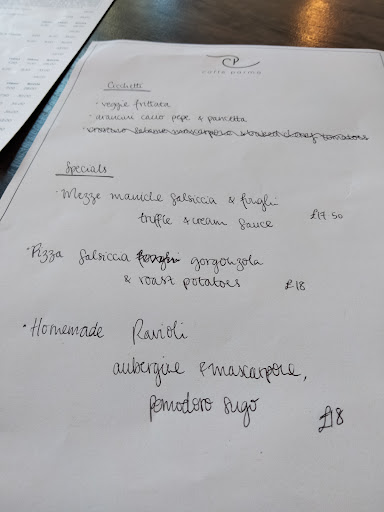 CP
caffe parma
Cicchetti
· veggie frittata
· arancini cacio pepe & pancetta
Specials
· Mezze maniche salsiccia & funghi
truffle & cream sauce £17.50
· Pizza salsiccia gorgonzola
& roast potatoes £18
· Homemade Ravioli
aubergine & mascarpone,
pomodoro sugo
£18